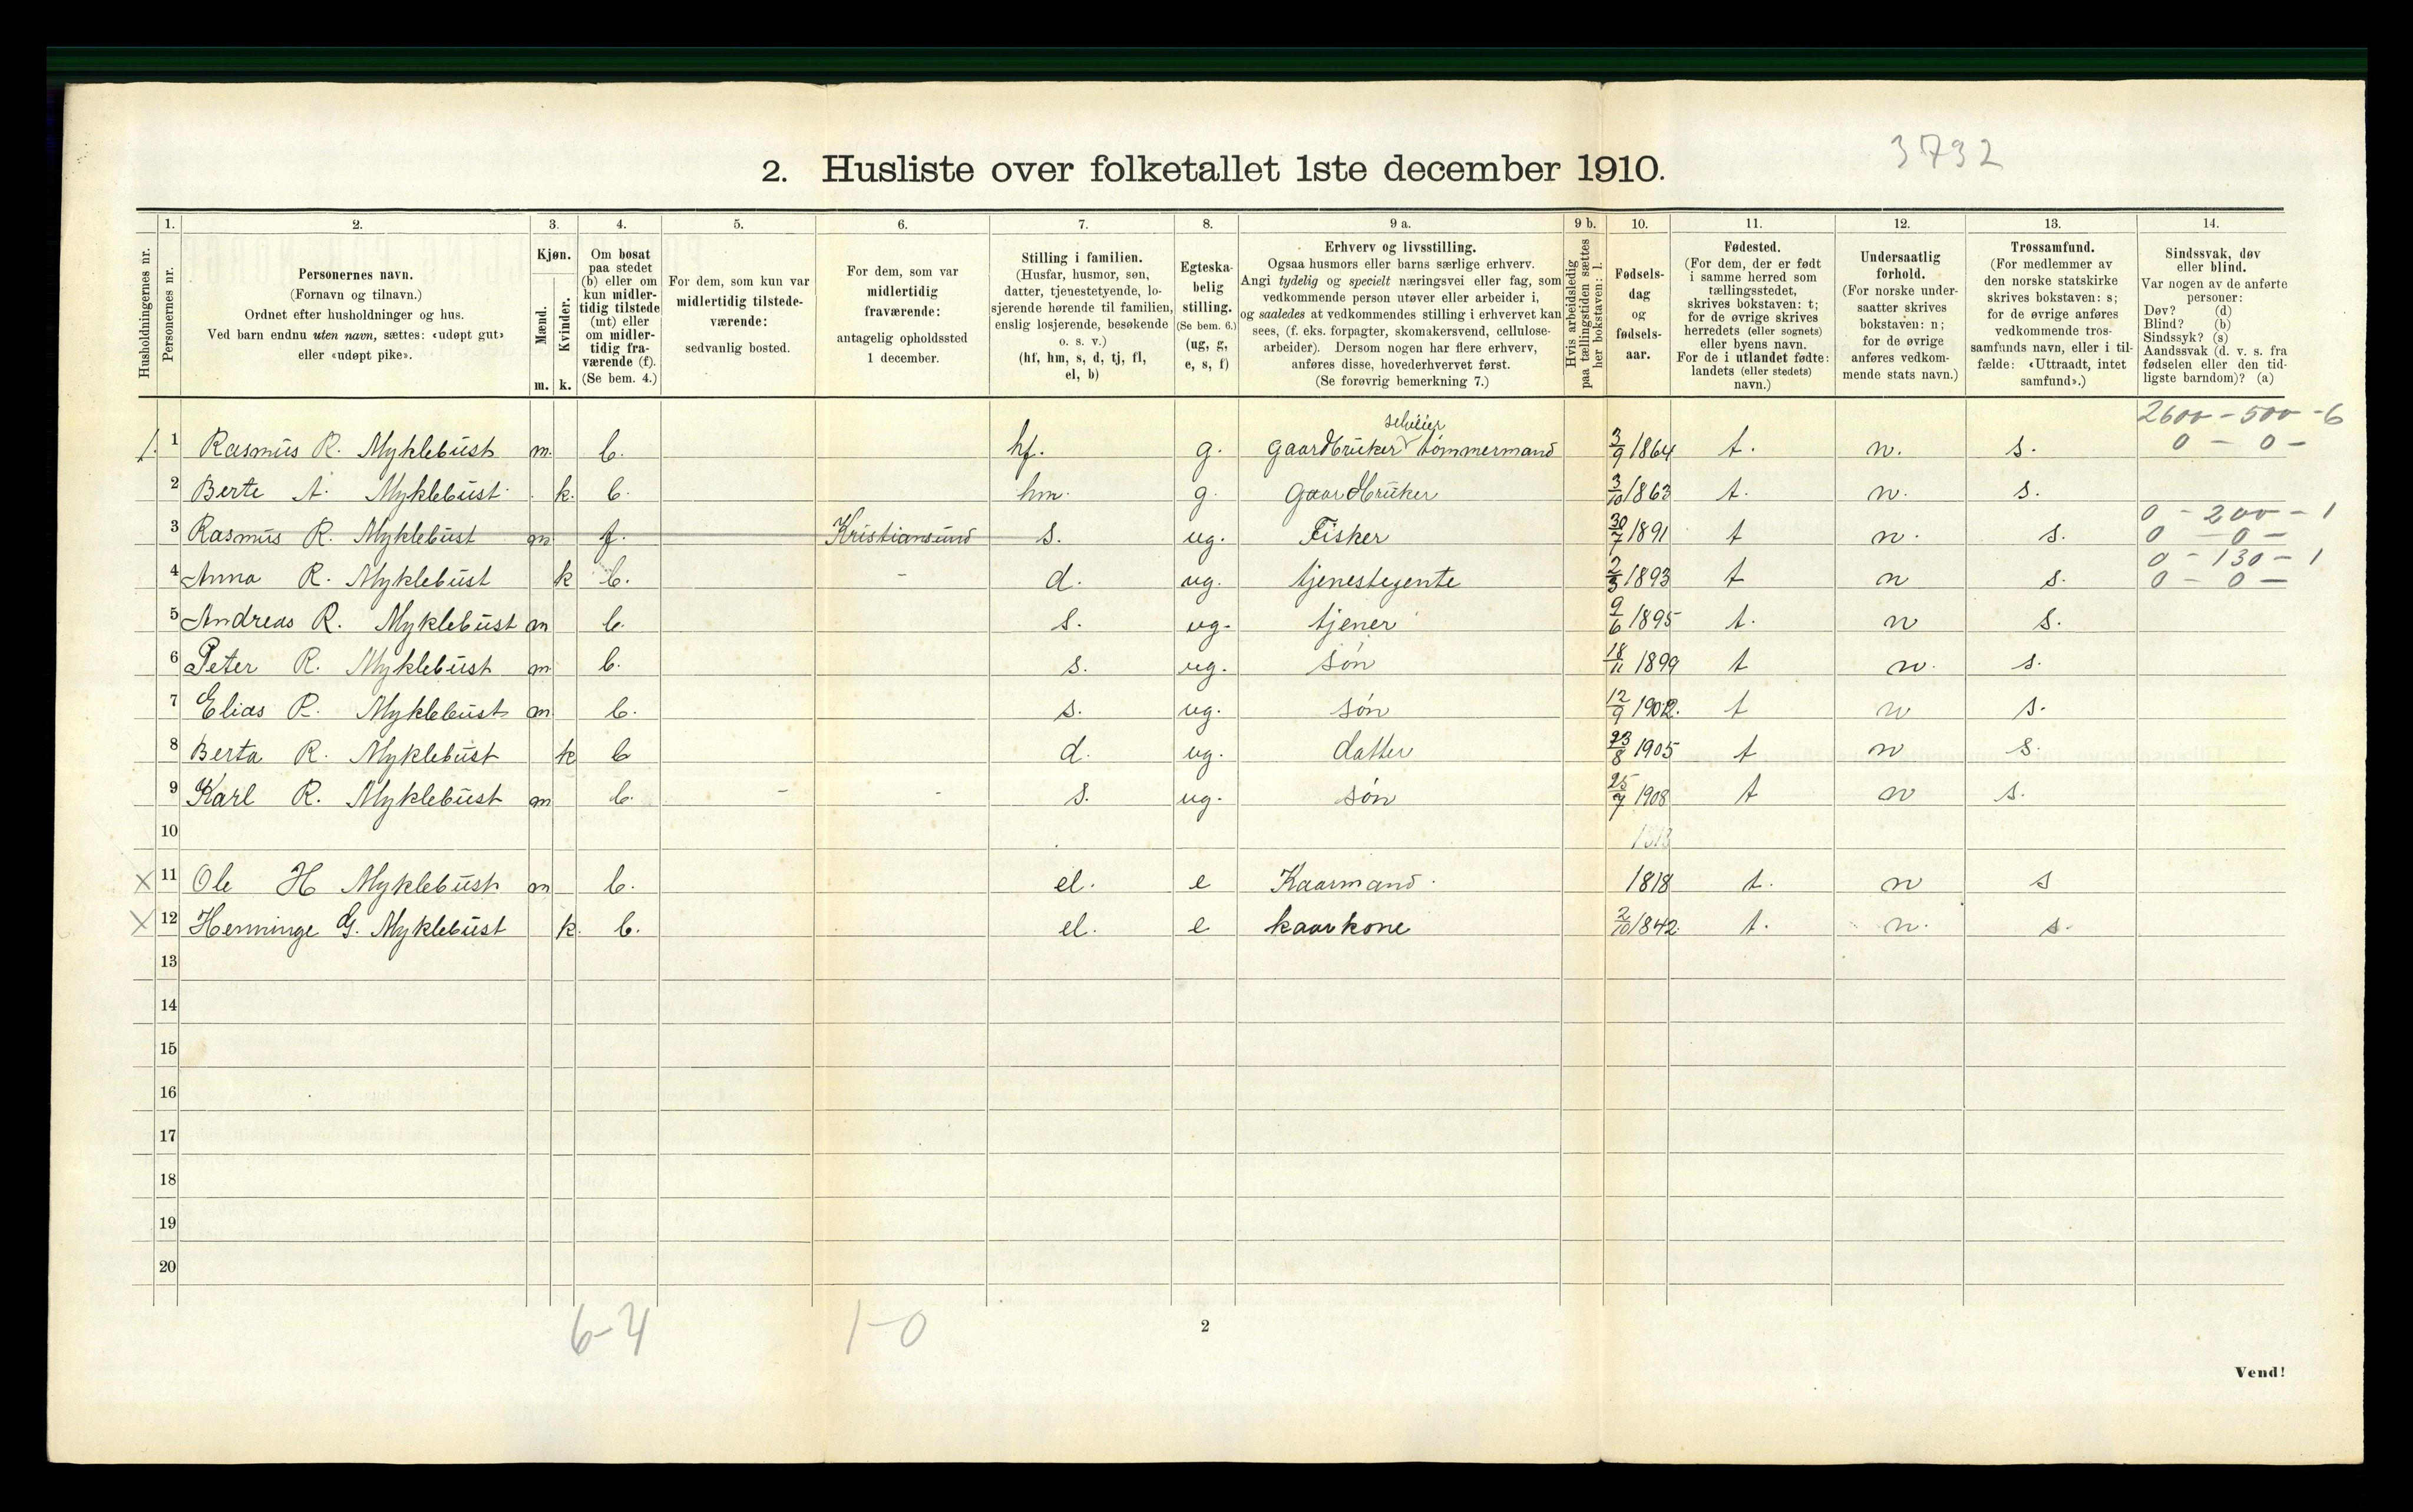 3732
2. Husliste over folketallet 1ste december 1910.
Husholdningernes nr.
1. Personernes nr.
2. Personernes navn. (Fornavn og tilnavn.) Ordnet efter husholdninger og hus. Ved barn endnu uten navn, sættes: «udøpt gut» eller «udøpt pike».
3. Kjøn. Mænd. m. Kvinder. k.
4. Om bosat paa stedet (b) eller om kun midlertidig tilstede (mt) eller om midlertidig fraværende (f). (Se bem. 4.)
5. For dem, som kun var midlertidig tilstedeværende: sedvanlig bosted.
6. For dem, som var midlertidig fraværende: antagelig opholdssted 1 december.
7. Stilling i familien. (Husfar, husmor, søn, datter, tjenestetyende, losjerende hørende til familien, enslig losjerende, besøkende o. s. v.) (hf, hm, s, d, tj, fl, el, b)
8. Egteskabelig stilling. (Se bem. 6.) (ug, g, e, s, f)
9 a. Erhverv og livsstilling. Ogsaa husmors eller barns særlige erhverv. Angi tydelig og specielt næringsvei eller fag, som vedkommende person utøver eller arbeider i, og saaledes at vedkommendes stilling i erhvervet kan sees, (f. eks. forpagter, skomakersvend, cellulosearbeider). Dersom nogen har flere erhverv, anføres disse, hovederhvervet først. (Se forøvrig bemerkning 7.)
9 b. Hvis arbeidsledig paa tællingstiden sættes her bokstaven: l.
10. Fødselsdag og fødselsaar.
11. Fødested. (For dem, der er født i samme herred som tællingsstedet, skrives bokstaven: t; for de øvrige skrives herredets (eller sognets) eller byens navn. For de i utlandet fødte: landets (eller stedets) navn.)
12. Undersaatlig forhold. (For norske undersaatter skrives bokstaven: n; for de øvrige anføres vedkommende stats navn.)
13. Trossamfund. (For medlemmer av den norske statskirke skrives bokstaven: s; for de øvrige anføres vedkommende trossamfunds navn, eller i tilfælde: «Uttraadt, intet samfund».)
14. Sindssvak, døv eller blind. Var nogen av de anførte personer: Døv? (d) Blind? (b) Sindssyk? (s) Aandssvak (d. v. s. fra fødselen eller den tidligste barndom)? (a)
2600 - 500 - 6
1. 1 Rasmus R. Myklebust m. b. hf. g. Gaardbruker selveier tømmermand 3/9 1864 t. n. s. 0 - 0 -
2 Berte A. Myklebust k. b. hm. g. Gaardbruker 3/10 1863 t. n. s.
0 - 200 - 1
3 Rasmus R. Myklebust m f. Kristiansund s. ug. Fisker 30/7 1891 t n. s. 0 - 0 -
0 - 130 - 1
4 Anna R. Myklebust k b. - d. ug. tjenestegente 2/3 1893 t n s. 0 - 0 -
5 Andreas R. Myklebust m b. s. ug. tjener 9/6 1895 t. n s.
6 Peter R. Myklebust m b. s. ug. søn 18/11 1899 t n. s.
7 Elias R. Myklebust m b. s. ug. søn 12/9 1902. t n s.
8 Berta R. Myklebust k b d. ug. datter 23/8 1905 t n s.
9 Karl R. Myklebust m b. - - s. ug. søn 25/7 1908 t n s.
10
X 11 Ole H Myklebust m b. el. e Kaarmand. 1818 t. n s
X 12 Henninge G. Myklebust k. b. el. e kaarkone 2/10 1842. t. n. s.
13
14
15
16
17
18
19
20
6-4 1-0
2
Vend!